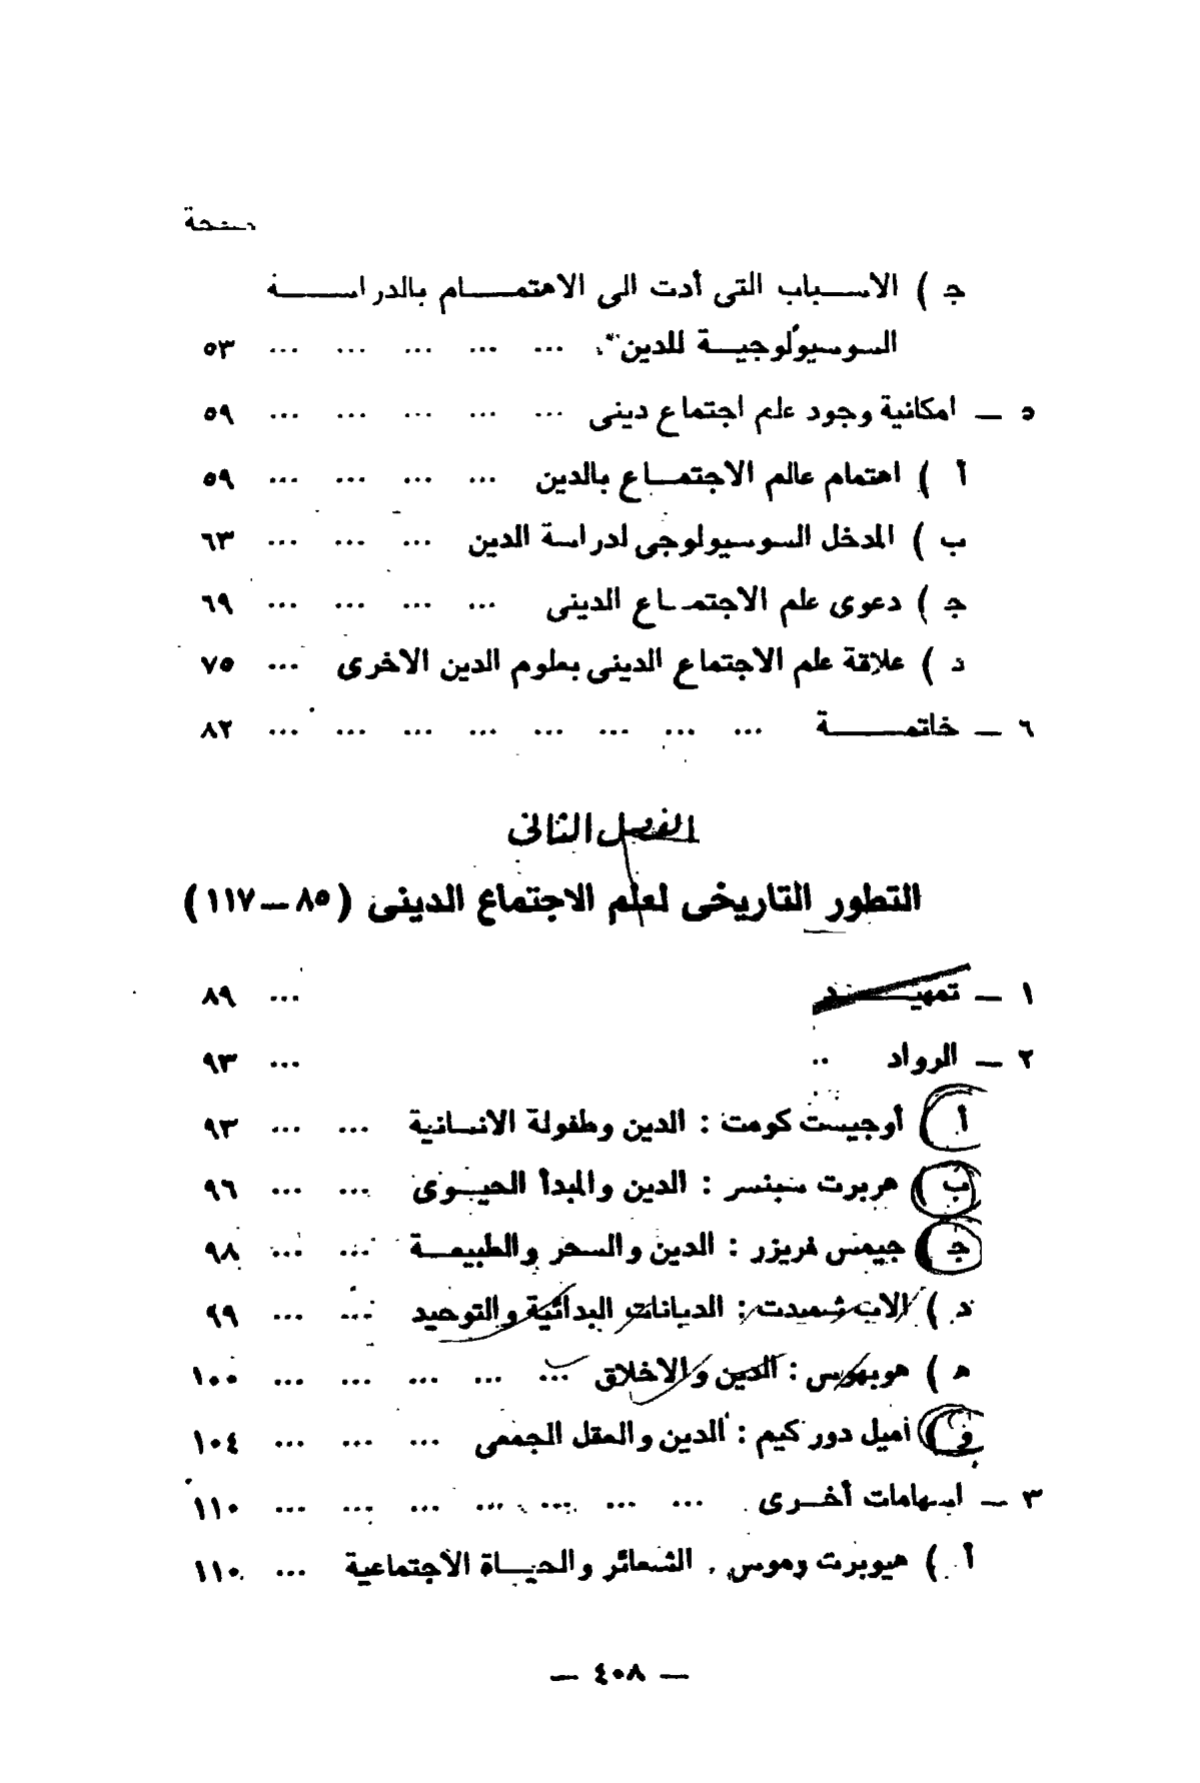 صفحة
ج ) الاسباب التى أدت الى الاهتمام بالدراسة
السوسيولوجية للدين .. ... ... ... ... ... ٥٣
٥ — امكانية وجود علم اجتماع دينى ... ... ... ... ... ٥٩
أ ) اهتمام عالم الاجتماع بالدين ... ... ... ... ٥٩
ب ) المدخل السوسيولوجى لدراسة الدين ... ... ... ٦٣
ج ) دعوى علم الاجتماع الدينى ... ... ... ... ٦٩
د ) علاقة علم الاجتماع الدينى بعلوم الدين الاخرى ... ٧٥
٦ — خاتمة ... ... ... ... ... ... ... ... ٨٢
الفصل الثانى
التطور التاريخى لعلم الاجتماع الدينى (٨٥ — ١١٧)
١ — تمهيد ... ٨٩
٢ — الرواد .. ... ٩٣
أ ) أوجيست كومت : الدين وطفولة الانسانية ... ... ٩٣
ب ) هربرت سبنسر : الدين والمبدأ الحيوى ... ... ٩٦
ج ) جيمس فريزر : الدين والسحر والطبيعة ... ... ٩٨
د ) الاب شميدت : الديانات البدائية والتوحيد ... ... ٩٩
ه ) هوبهوس : الدين والاخلاق ... ... ... ... ... ١٠٠
و ) أميل دور كيم : الدين والعقل الجمعى ... ... ... ١٠٤
٣ — اسهامات أخرى ... ... ... ... ... ... ... ١١٠
أ ) هيوبرت وموس . الشعائر والحياة الاجتماعية ... ١١٠
— ٤٠٨ —